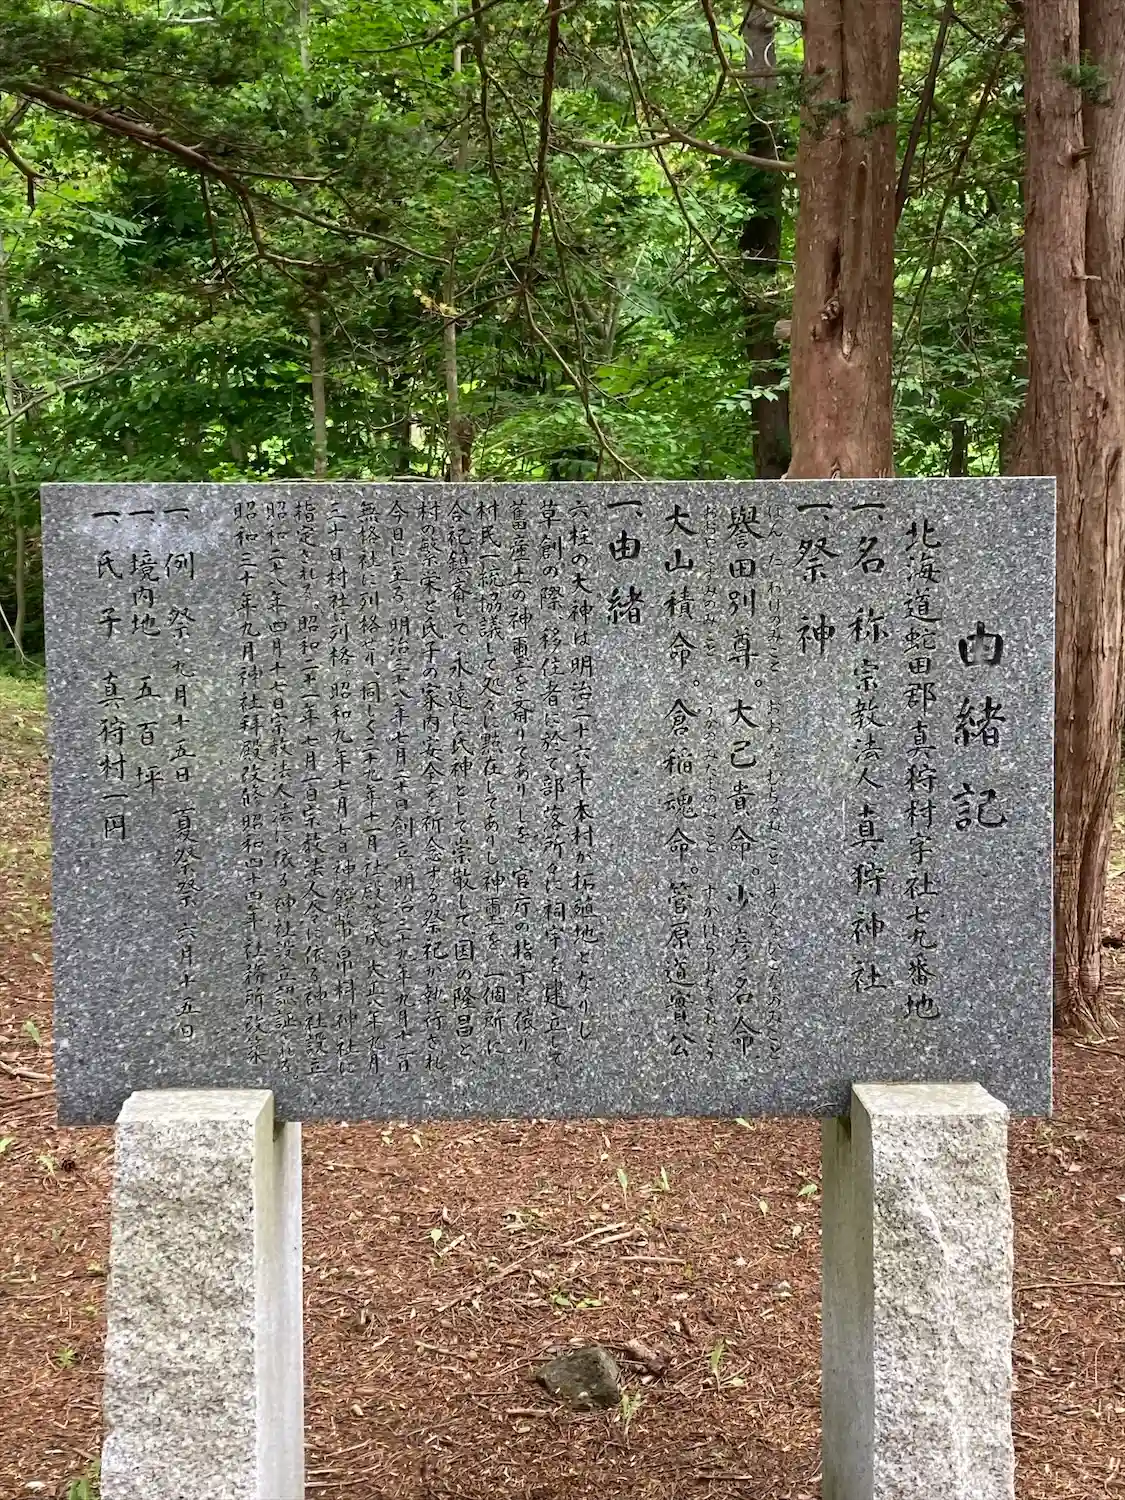 由緒記
北海道虻田郡真狩村字社七九番地
一、名称 宗教法人真狩神社
一、祭神
ほんたわけのみこと。おおなむちのみこと。すくなひこなのみこと
譽田別尊。大己貴命。少彦名命
おおやまつみのみこと。うかのみたまのみこと すがはらみちざねこう
大山積命。倉稲魂命。菅原道實公
一、由緒
六柱の大神は明治二十六年本村が拓殖地となりし
草創の際、移住者に於て部落所々に祠宇を建立して
舊産土の神靈を斎りてありしを、官庁の指示に依り
村民一統協議して処々に黙在してありし神靈を、一個所に
合祀鎮斎して、永遠に氏神として崇敬して国の隆昌と、
村の繁栄と氏子の家内安全を祈念する祭祀が執行され
今日に至る。明治三十八年七月二十日創立、明治三十九年九月十二日
無格社に列格、同しく三十九年十一月社殿落成、大正八年九月
三十日村社に列格、昭和九年七月七日神饌幣帛料神社に
指定される。昭和二十一年七月一日宗教法人令に依る神社設立
昭和二十八年四月十七日宗教法人法に依る神社設立認証される。
昭和三十年九月神社拝殿改修、昭和四十四年社務所改築
一、例祭 九月十五日 夏祭祭 六月十五日
一、境内地 五百坪
一、氏子 真狩村一円